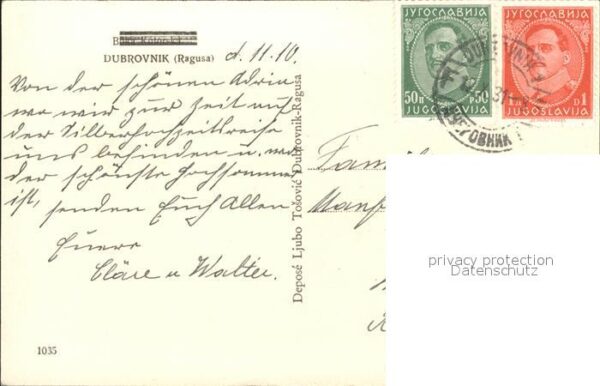 Boka Kotorska
DUBROVNIK (Ragusa) d. 11.10.
Von der schönen Adria
wo wir zur Zeit auf
der Silberhochzeitsreise
uns befinden u. wo
der schönste Hochsommer
ist, senden Euch Allen
Euere
Cläre u Walter.
1035
Deposé Ljubo Tošović Dubrovnik-Ragusa
ЈУГОСЛАВИЈА
50П P50
JUGOSLAVIJA
ЈУГОСЛАВИЈА
1
JUGOSLAVIJA
DUBROVNIK
31
ДУБРОВНИК
Fam
privacy protection
Datenschutz